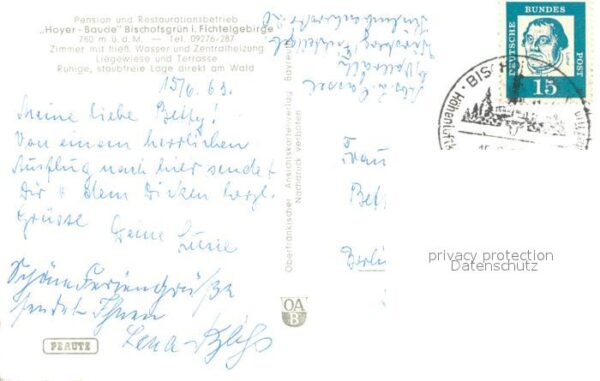 Pension und Restaurationsbetrieb
„Hoyer-Baude" Bischofsgrün i. Fichtelgebirge
760 m ü. d. M. — Tel. 09276-287
Zimmer mit fließ. Wasser und Zentralheizung
Liegewiese und Terrasse
Ruhige, staubfreie Lage direkt am Wald
15/6. 63.
Meine liebe Betty!
Von einem herrlichen
Ausflug nach hier sendet
Dir u dem Dicken herzl.
Grüsse
Deine
Schöne Feriengrüße
sendet Ihnen
Lena
PERUTZ
Oberfränkischer Ansichtskartenverlag Bayreuth
Nachdruck verboten
OA
B
Frau
Berlin
DEUTSCHE BUNDESPOST
15
BISCH
Höhenluftk
privacy protection
Datenschutz